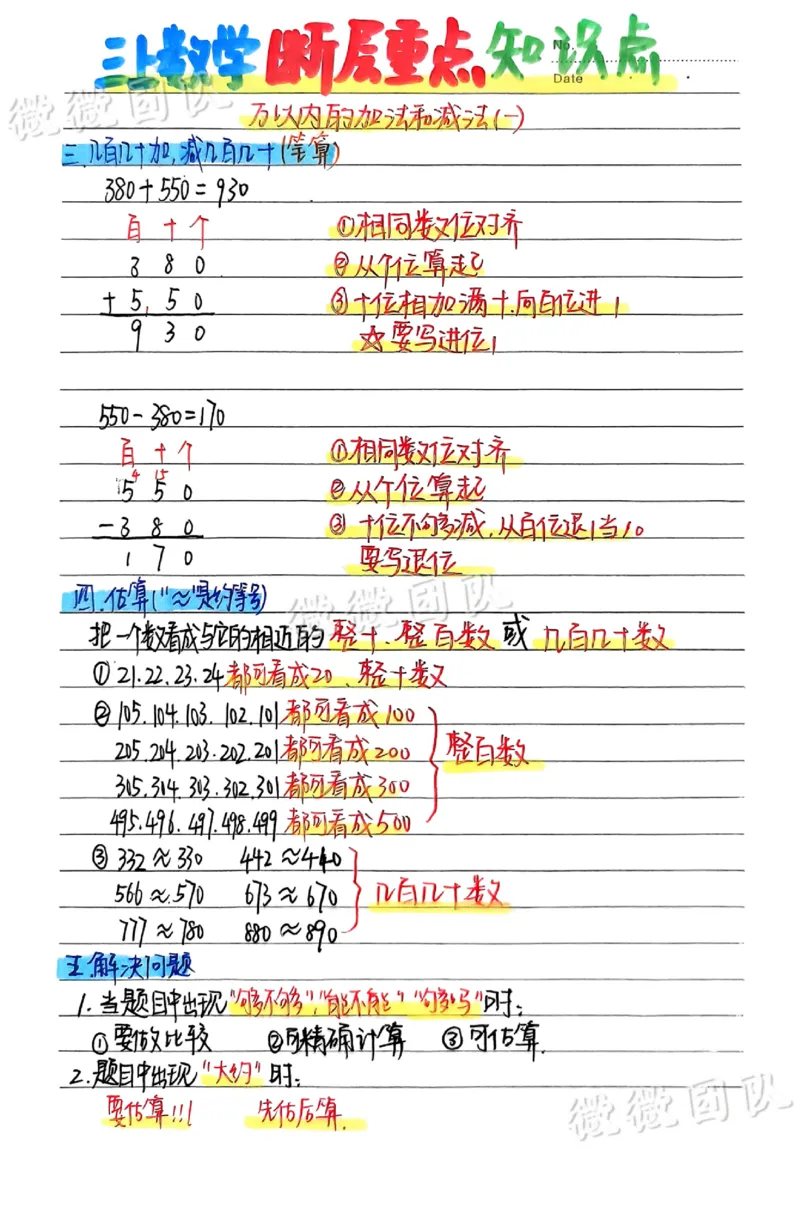 三上数学断层重点知识点
No.
Date
微微团队
万以内的加法和减法(一)
三.几百几十加,减几百几十(笔算)
380+550=930
百 十 个
3 8 0
+ 5 1 5 0
9 3 0
①相同数位对齐
②从个位算起
③十位相加满十.向百位进1
☆要写进位1
550-380=170
百 十 个
4 15
5 5 0
-3 8 0
1 7 0
①相同数位对齐
②从个位算起
③十位不够减,从百位退1当10
要写退位
四.估算("≈"是约等号)
微微团队
把一个数看成与它的相近的整十、整百数或几百几十数
①21.22.23.24都可看成20、整十数
②105.104.103.102.101都可看成100
205.204.203.202.201都可看成200
305.304.303.302.301都可看成300
495.496.497.498.499都可看成500
整百数
③332≈330 442≈440
566≈570 673≈670
777≈780 880≈890
几百几十数
五.解决问题
1.当题目中出现"够不够","能不能","够吗"时:
①要做比较 ②可精确计算 ③可估算.
2.题目中出现"大约"时:
要估算!!! 先估后算.
微微团队